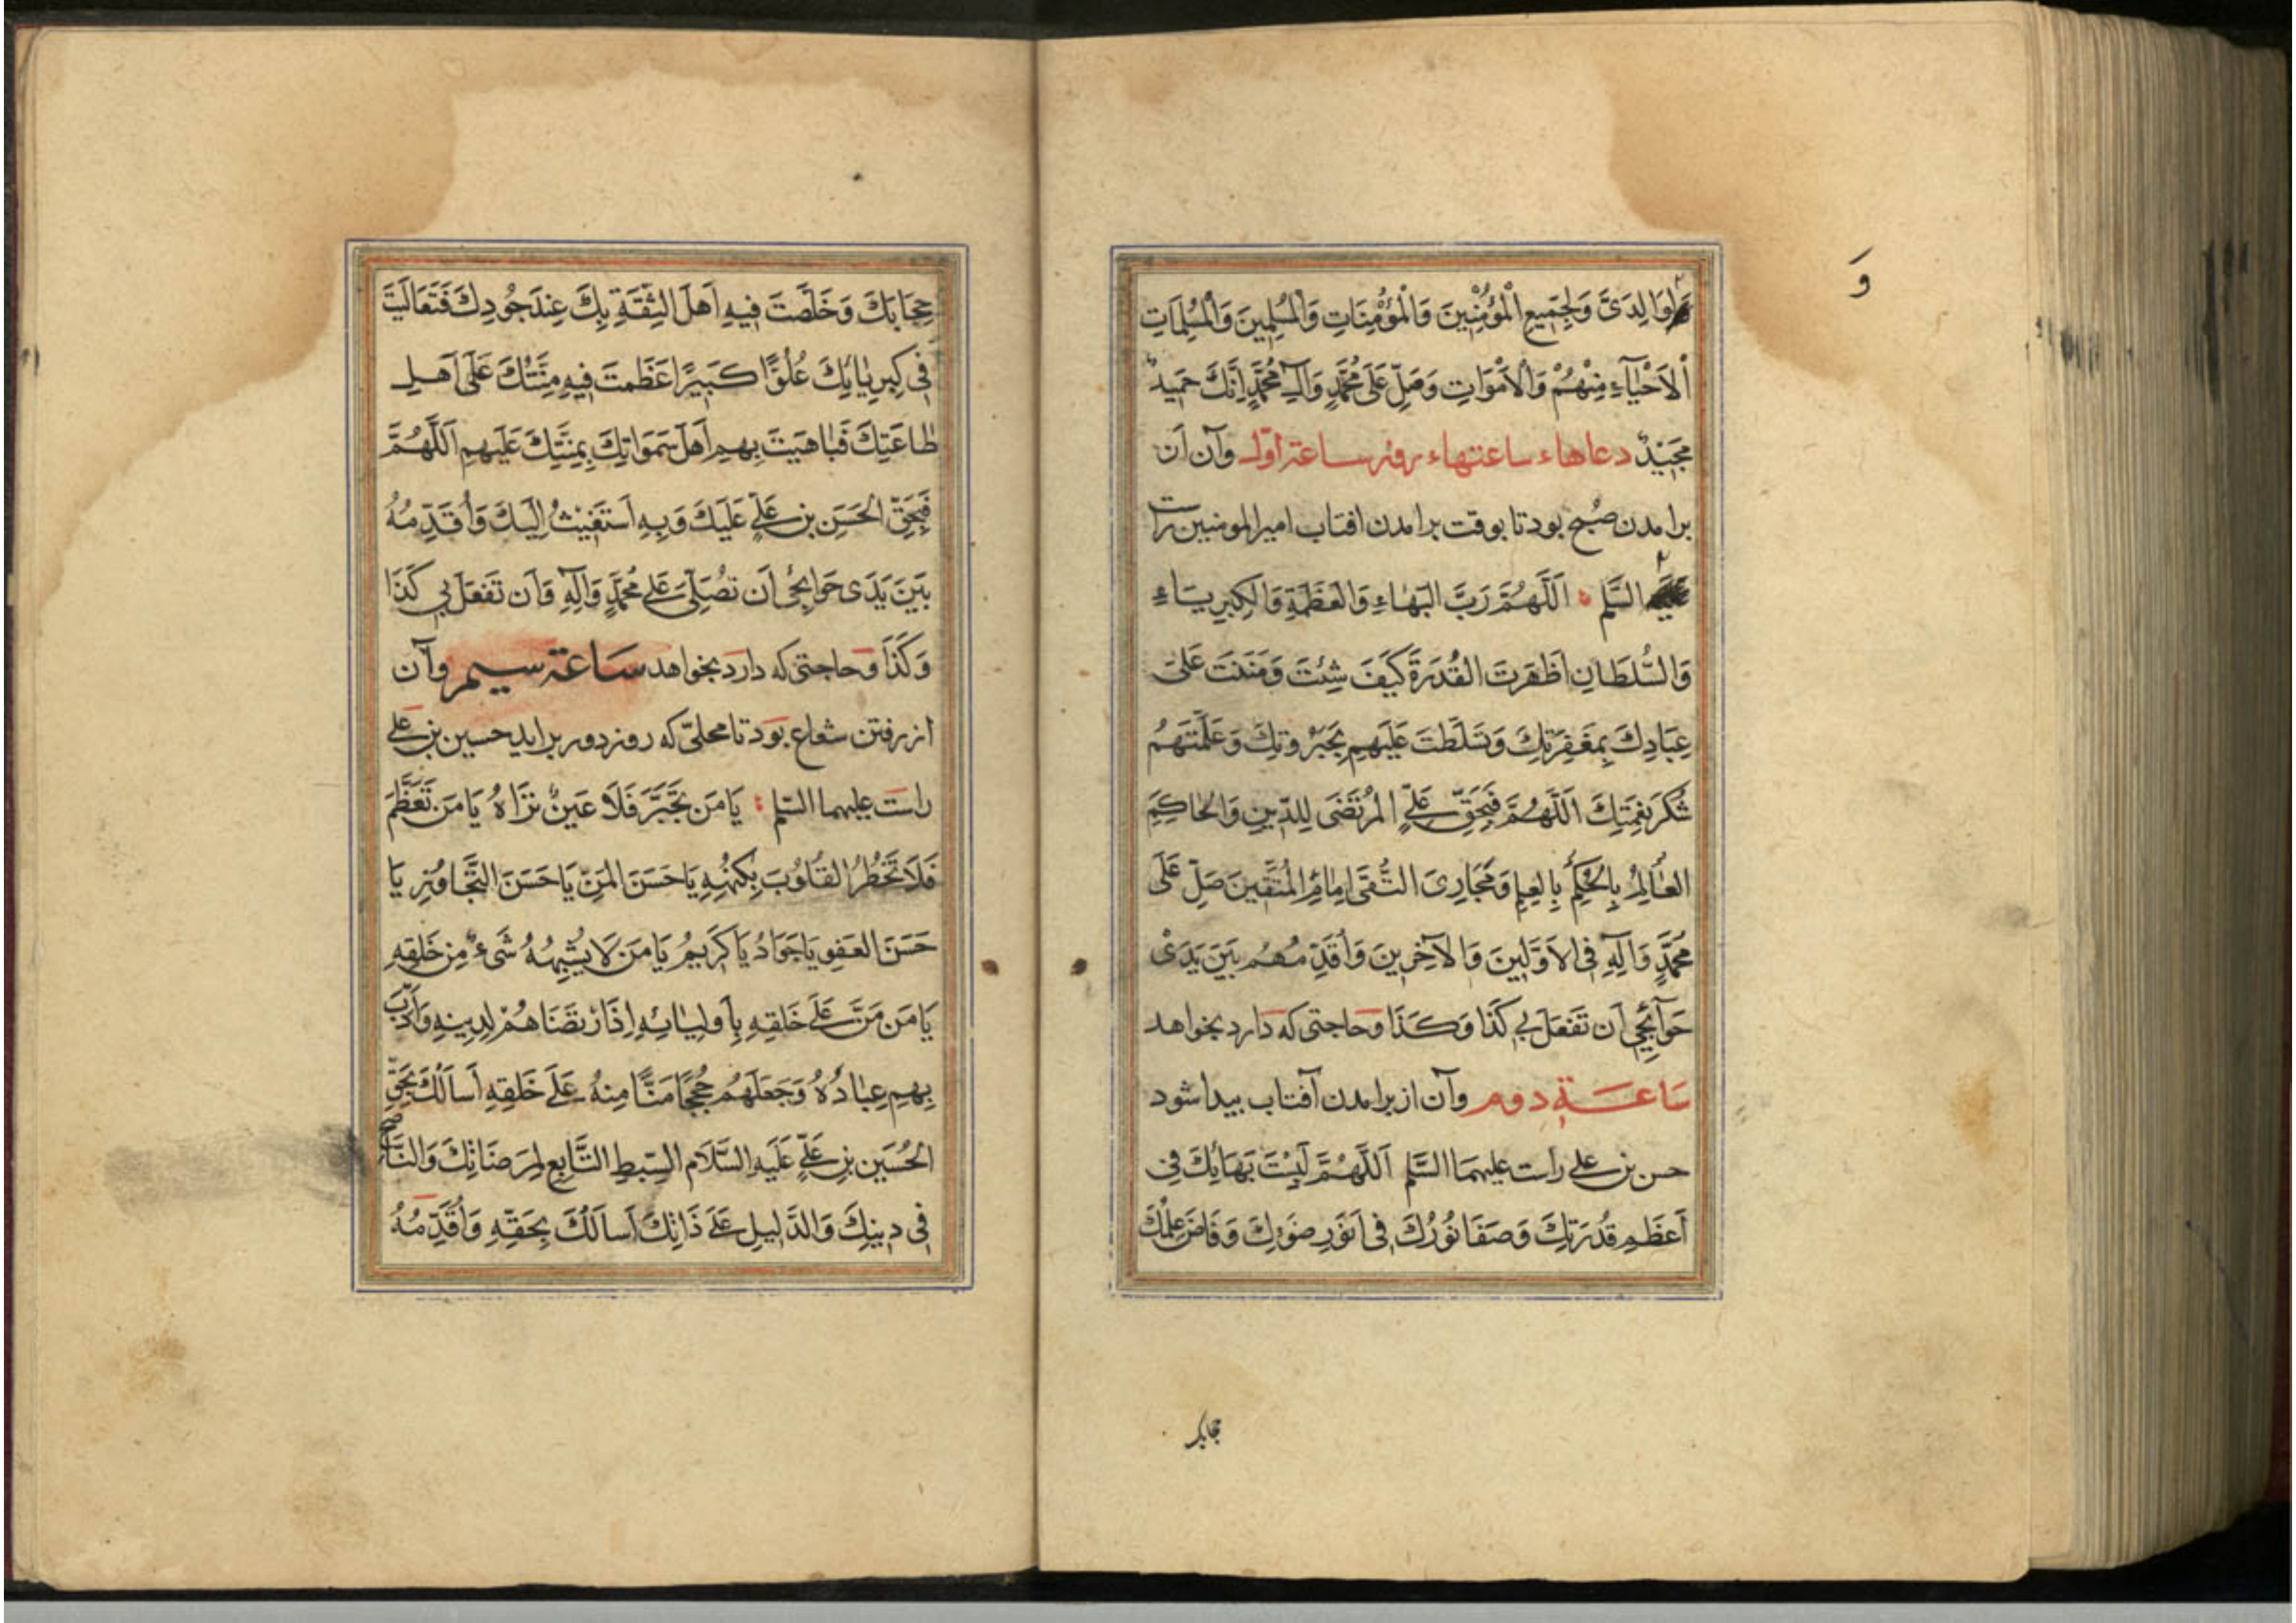 وَ
وَلِوَالِدَىَّ وَلِجَمِيعِ الْمُؤْمِنِينَ وَالْمُؤْمِنَاتِ وَالْمُسْلِمِينَ وَالْمُسْلِمَاتِ
اَلْاَحْيَآءِ مِنْهُمْ وَالْاَمْوَاتِ وَصَلِّ عَلَى مُحَمَّدٍ وَآلِ مُحَمَّدٍ اِنَّكَ حَمِيدٌ
مَجِيدٌ دعاهاء ساعتهاء روز ساعة اوّل وآن ازن
برامدن صُبح بود تا بوقت برامدن افتاب امیرالمومنین راست
عليه السَّلم اَللَّهُمَّ رَبَّ الْبَهَاءِ وَالْعَظَمَةِ وَالْكِبْرِيَاءِ
وَالسُّلْطَانِ اَظْهَرْتَ الْقُدْرَةَ كَيْفَ شِئْتَ وَمَنَنْتَ عَلَى
عِبَادِكَ بِمَغْفِرَتِكَ وَتَسَلَّطْتَ عَلَيْهِمْ بِجَبَرُوتِكَ وَعَلَّمْتَهُمْ
شُكْرَ نِعْمَتِكَ اَللَّهُمَّ فَبِحَقِّ عَلِىٍّ الْمُرْتَضَى لِلدِّينِ وَالْحَاكِمِ
الْعَالِمِ بِالْحُكْمِ بِالْعِلْمِ وَمَجَارِىَ التُّقَى اِمَامِ الْمُتَّقِينَ صَلِّ عَلَى
مُحَمَّدٍ وَآلِهِ فِى الْاَوَّلِينَ وَالْآخِرِينَ وَاُقَدِّمُهُمْ بَيْنَ يَدَىْ
حَوَآئِجِى اَنْ تَفْعَلَ بِى كَذَا وَكَذَا وحاجتی که دارد بخواهد
سَاعَة دوم وآن از برامدن آفتاب بیدا شود
حسن بن علی راست علیهما السَّلم اَللَّهُمَّ لَبِسْتَ بَهَائِكَ فِى
اَعْظَمِ قُدْرَتِكَ وَصَفَا نُورُكَ فِى اَنْوَرِ ضَوْئِكَ وَفَاضَ عِلْمُكَ
حجابک
حِجَابَكَ وَخَلَّصْتَ فِيهِ اَهْلَ الثِّقَةِ بِكَ عِنْدَ جُودِكَ فَتَعَالَيْتَ
فِى كِبْرِيَائِكَ عُلُوًّا كَبِيرًا عَظُمَتْ فِيهِ مِنَّتُكَ عَلَى اَهْلِ
طَاعَتِكَ فَبَاهَيْتَ بِهِمْ اَهْلَ سَمَوَاتِكَ بِمِنَّتِكَ عَلَيْهِمْ اَللَّهُمَّ
فَبِحَقِّ الْحَسَنِ بْنِ عَلِىٍّ عَلَيْكَ وَبِهِ اَسْتَغِيثُ اِلَيْكَ وَاُقَدِّمُهُ
بَيْنَ يَدَى حَوَائِجِى اَنْ تُصَلِّىَ عَلَى مُحَمَّدٍ وَآلِهِ وَاَنْ تَفْعَلَ بِى كَذَا
وَكَذَا وحاجتی که دارد بخواهد سَاعَة سیم وآن
از رفتن شعاع بود تا محلّی که روز دور براید حسین بن علی
راست علیهما السّلم يَا مَنْ تَجَبَّرَ فَلَا عَيْنٌ تَرَاهُ يَا مَنْ تَعَظَّمَ
فَلَا تَخْطُرُ الْقُلُوبَ بِكُنْهِهِ يَا حَسَنَ الْمَنِّ يَا حَسَنَ التَّجَاوُزِ يَا
حَسَنَ الْعَفْوِ يَا جَوَادُ يَا كَرِيمُ يَا مَنْ لَا يُشْبِهُهُ شَىْءٌ مِنْ خَلْقِهِ
يَا مَنْ مَنَّ عَلَى خَلْقِهِ بِاَوْلِيَائِهِ اِذِ ارْتَضَاهُمْ لِدِينِهِ وَاَدَّبَ
بِهِمْ عِبَادَهُ وَجَعَلَهُمْ حُجَجًا مَنًّا مِنْهُ عَلَى خَلْقِهِ اَسْاَلُكَ بِحَقِّ
الْحُسَيْنِ بْنِ عَلِىٍّ عَلَيْهِ السَّلَامُ السِّبْطِ التَّابِعِ لِمَرْضَاتِكَ وَالنَّاصِحِ
فِى دِينِكَ وَالدَّلِيلِ عَلَى ذَاتِكَ اَسْاَلُكَ بِحَقِّهِ وَاُقَدِّمُهُ